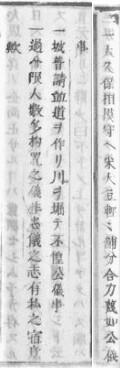 一大久保相模守ヘ米大豆郵ミ補分合力魏如公儀
事
一城普請並道ヲ作リ川ヲ堀テ不憚公儀事
一過分限人数多拘置之儀非忠儀之志有私之宿意
歟